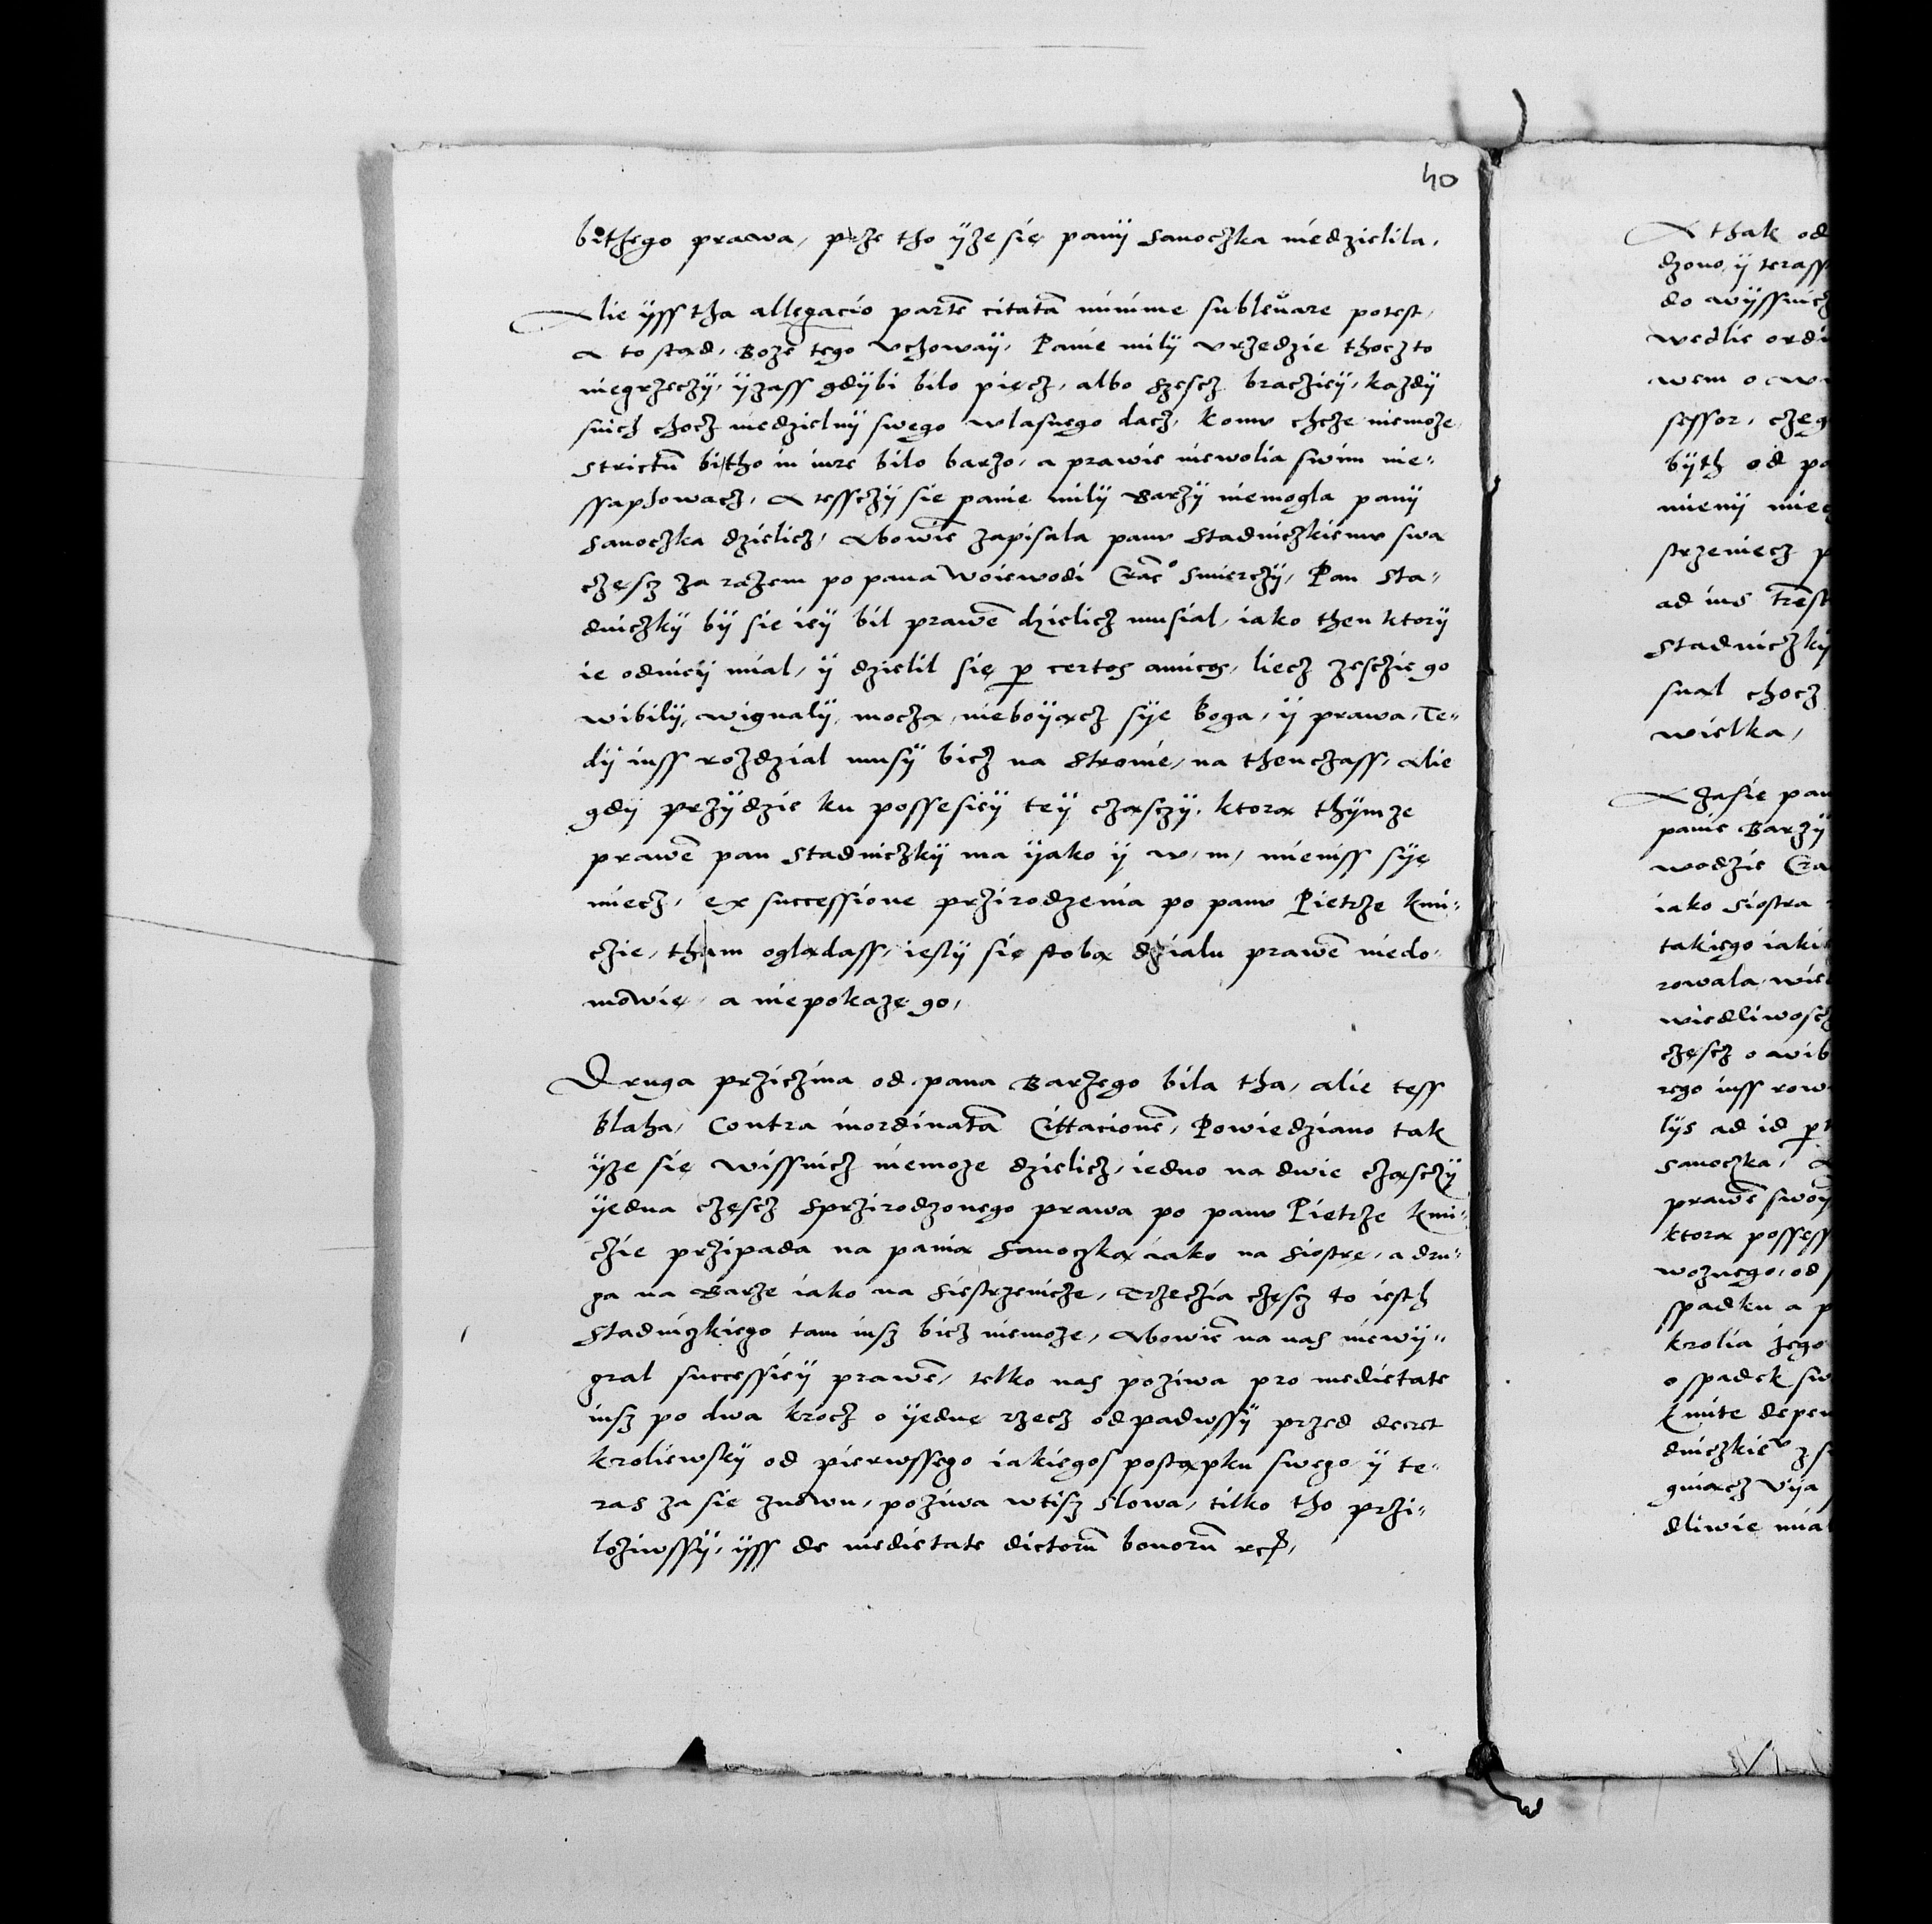 40
bithego prawa, prze tho yze się panÿ Sanoczka niedzielila,
Alie ÿss tha allegacio partē citatā minime subleuare potest,
A to stąd, Boze tego vchowaÿ, Panie milÿ vrzedzie thoczto
niegrzeczÿ, ÿzass gdÿbi bilo pięcz, albo szescz bracziеÿ, kazdÿ
snich chocz niedzielnÿ swego wlasnego dacz, komv chcze niemoze,
Strictū bi tho in iure bilo barzo, a prawie niewolia swim nie=
ssaphowacz, A tessczÿ sie panie milÿ Barzÿ niemogla panÿ
Sanoczka dzielicz, Abowiē zapisala panv Stadniczkiemv swa
częscz za razem po pana Woiewodi Crac° smierczÿ, Pan Sta=
dniczkÿ bÿ sie ieÿ bil prawē dzielicz musial, iako then ktorÿ
ie odnieÿ mial, ÿ dzielil się p certos amicos, liecz zescziego
wibilÿ, wignalÿ, moczą, nieboÿącz sÿe boga, ÿ prawa, Te=
dÿ iuss rozdzial musÿ bicz na Stronie, na thenczass, Alie
gdÿ przÿdzie ku possesieÿ teÿ cząsczÿ, ktorą thÿmze
prawē pan Stadniczkÿ ma ÿako ÿ w, m, mieniss sÿę
miecz, ex successione przirodzenia po panv Pietrze kmi=
czie, tham oglądass, iestÿ się stobą dzialu prawē niedo=
mowię, a niepokazę go,
Druga przicziną od pana Barzego bila tha, alie tess
blaha, Contra inordinatā Cittacionē, Powiedziano tak
ÿze się wissnicz niemoze dzielicz, iedno na dwie cząsczÿ
ÿedna częscz Sprzirodzonego prawa po panv Pietrze kmi=
czie przipada na panią Sanoczką iako na Siostrę, a dru=
ga na Barze iako na Siestrzenicze, Trzeczia częscz to iesth
Stadniczkiego tam iusz bicz niemoze, Abowiē na nas niewÿ=
gral successieÿ prawē, telko nas poziwa pro medietate
iusz po dwa krocz o ÿednę rzecz odpadwssÿ przed decret
kroliewskÿ od pierwssego iakiegos postąpku swego ÿ te=
ras za sie znowu, poziwa wtisz slowa, tilko tho przi=
loziwssÿ, ÿss de medietate dictorū bonorū

A thak od
dzono ÿ terass
do wÿssnicz
wedlie ordi
sessor, czeg
bÿth od po
mienÿ mie
strzeniecz p
Stadniczkÿ
snąl chocz
wielka,
A zasię pan
panie Barzÿ
wodzie Cra
iako Siostra
takiego iaki
rowala, wie
wiedliwoscz
częscz o wib
rego iuss row
lÿs ad id
Sanoczka, A
prawē swoÿ
ktorą possess
woznego, od
spadku a p
krolia jego
o spadek sw
kmite depen
gniącz Vÿa
dliwie mial